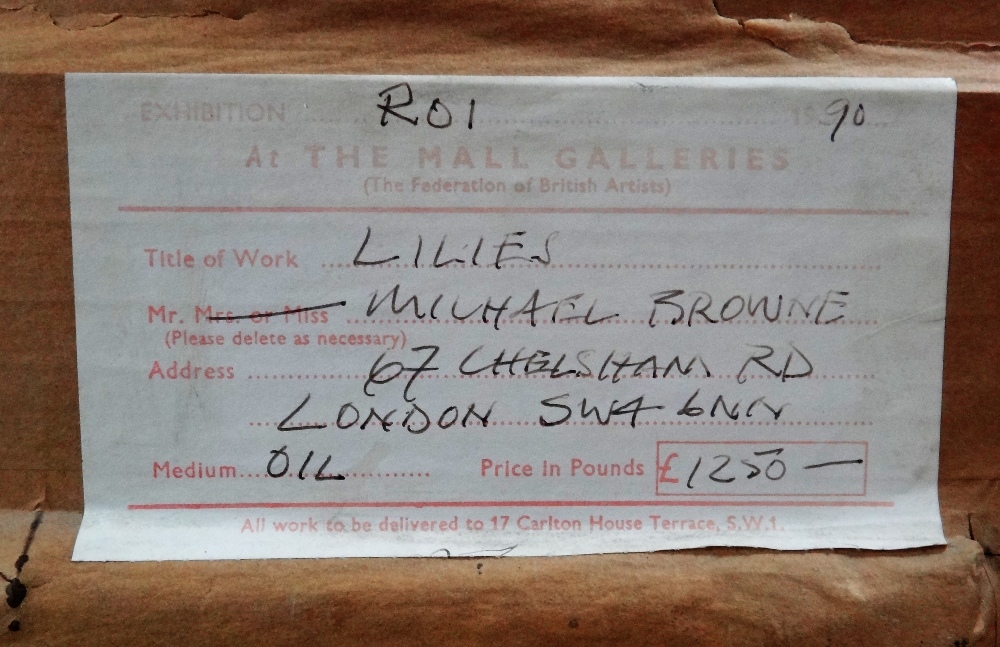 EXHIBITION ROI 1990
At THE MALL GALLERIES
(The Federation of British Artists)
Title of Work LILIES
Mr. Mrs. or Miss MICHAEL BROWNE
(Please delete as necessary)
Address 67 CHELSHAM RD
LONDON SW4 6NN
Medium OIL Price in Pounds £1250 —
All work to be delivered to 17 Carlton House Terrace, S.W.1.